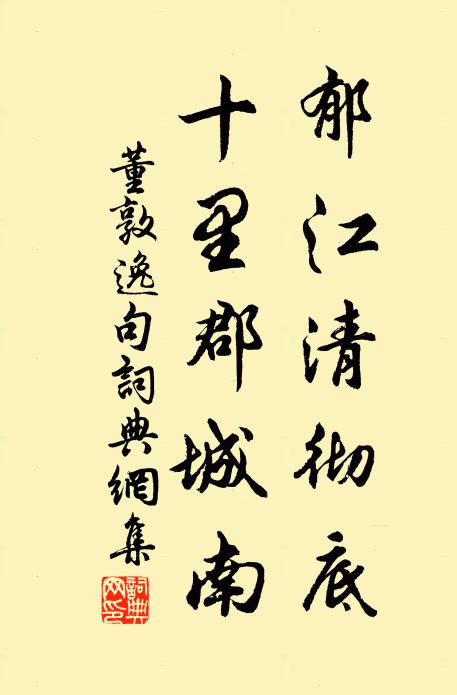 郁江清彻底
十里郡城南
董敦逸句詞典網集
詞典网印